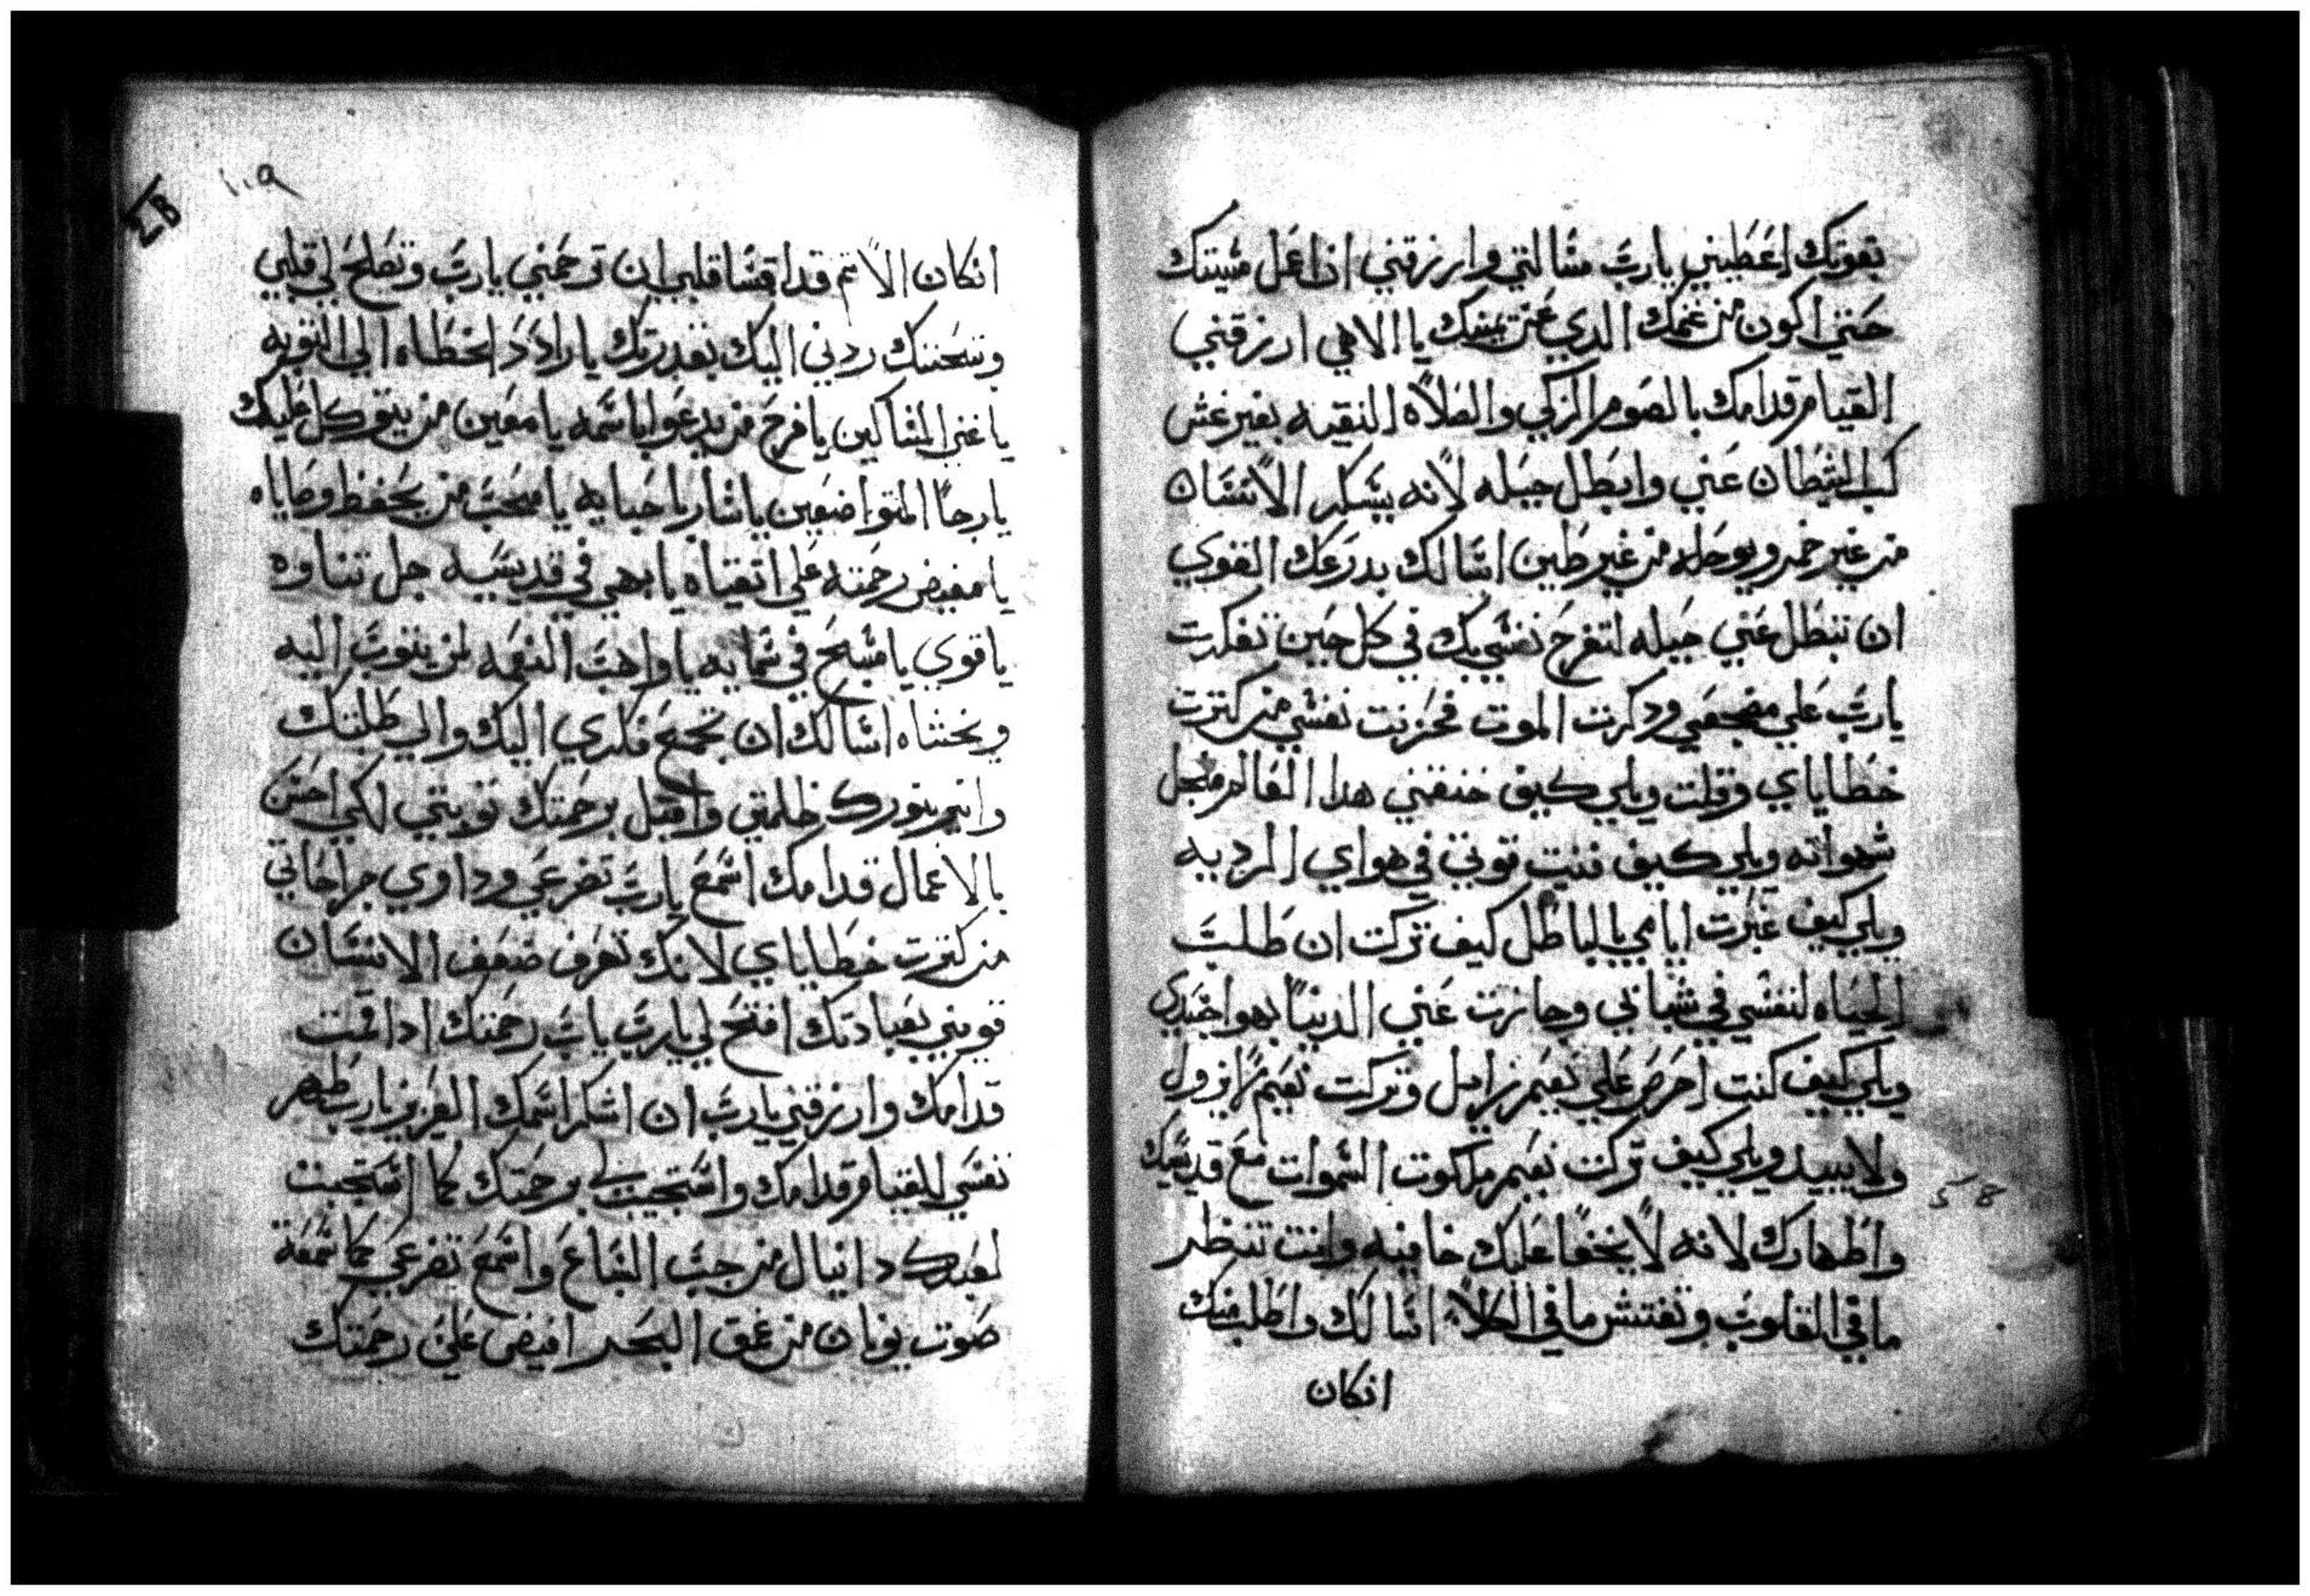 بقوتك اعطيني يارب مسالتي وارزقني ان اعمل مشيتك
حتي اكون من غنمك الدي عن يمينك يا الاهي ارزقني
القيام قدامك بالصوم الزكي والصلاه النقيه بغير غش
كب الشيطان عني وابطل حيله لانه يسكر الانسان
من غير خمر ويوحله من غير طين اسالك بدرعك القوي
ان تبطل عني حيله لتفرح نفسي بك في كل حين تفكرت
يارب علي مضجعي ودكرت الموت فحزنت نفسي من كترت
خطاياي وقلت ويلي كيف خنقني هدا العالم من اجل
شهواته ويلي كيف فنيت قوتي في هواي المرديه
ويلي كيف عبرت ايامي بالباطل كيف تركت ان طلبت
الحياه لنفسي في شبابي وجازت عني الدنيا بهوا جسدي
ويلي كيف كنت احرص علي نعيم زايل وتركت نعيم لا يزول
ولا يبيد ويلي كيف تركت نعيم ملكوت السموات مع قديسيك
واطهارك لانه لا يخفا عليك خافيه وانت تنظر
ما في القلوب وتفتش ما في الكلا اسالك واطلب منك
انكان
58
١٠٩
انكان الاتم قد اقسا قلبي ان ترحمني يارب وتصلح لي قلبي
وتتحننك ردني اليك بقدرتك يا رادد الخطاه الي التوبه
يا غني المساكين يا فرح من يدعوا باسمه يا معين من يتوكل عليك
يا رجا المتواضعين يا سار باحبايه يا محب من يحفظ وصاياه
يا مفيض رحمته علي اتقياه يا بهي في قديسيه جل تناوه
يا قوي يا مسبح في سمايه يا واهب النعمه لمن يتوب اليه
ويخشاه اسالك ان تجمع فكري اليك والي طلبتك
وانير بنورك ظلمتي واقبل برحمتك توبتي لكي احسن
بالاعمال قدامك اسمع يارب تضرعي وداوي جراحاتي
من كترت خطاياي لانك تعرف ضعف الانسان
قويني بعبادتك افتح لي يارب باب رحمتك ادا قمت
قدامك وارزقني يارب ان اشكر اسمك العزيز يارب طهر
نفسي للقيام قدامك واستجيب لي برحمتك كما استجبت
لعبدك دانيال من جب السباع واسمع تضرعي كما سمعة
صوت يونان من عمق البحر افيض علي رحمتك